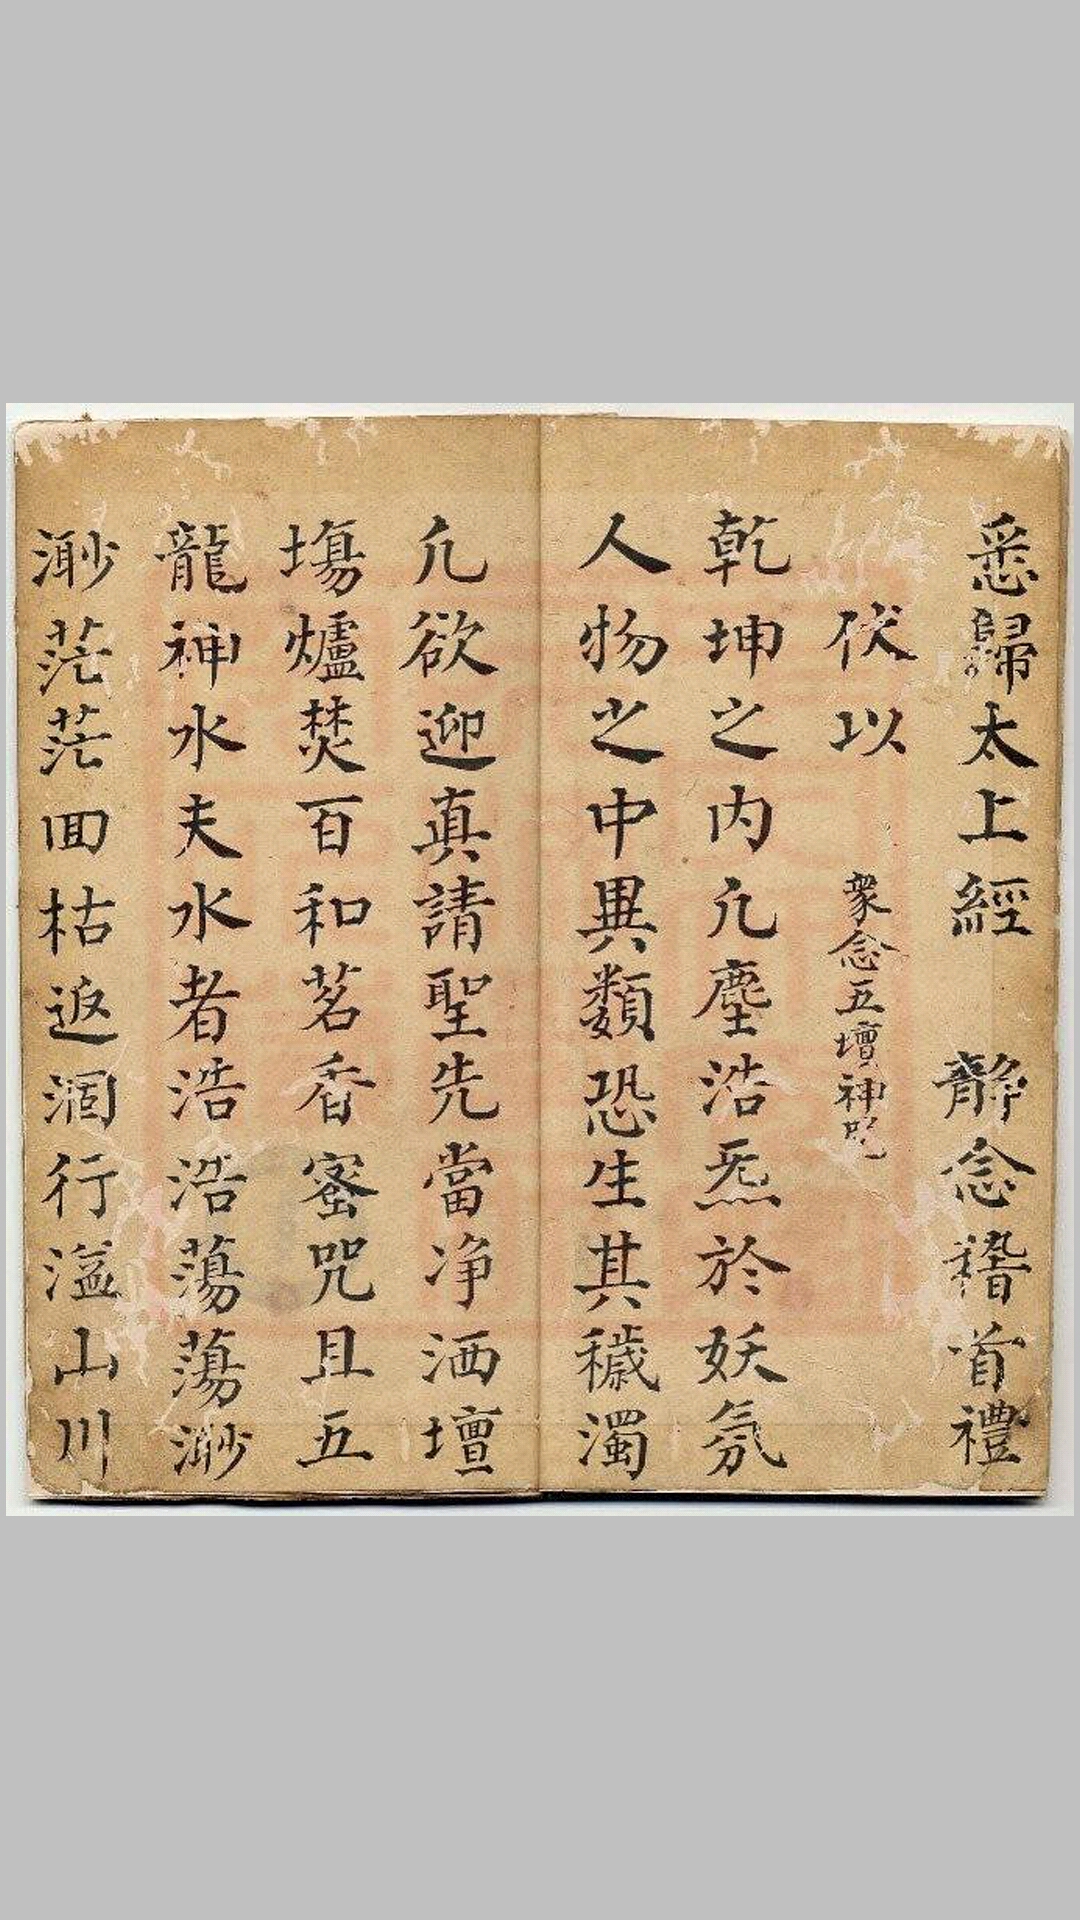 悉歸太上經　静念稽首禮
伏以　衆念五壇神咒
乾坤之内凢塵浩炁於妖氛
人物之中異類恐生其穢濁
凢欲迎真請聖先當净洒壇
塲爐焚百和茗香蜜咒且五
龍神水夫水者浩浩蕩蕩渺
渺茫茫囬枯返涸行溢山川